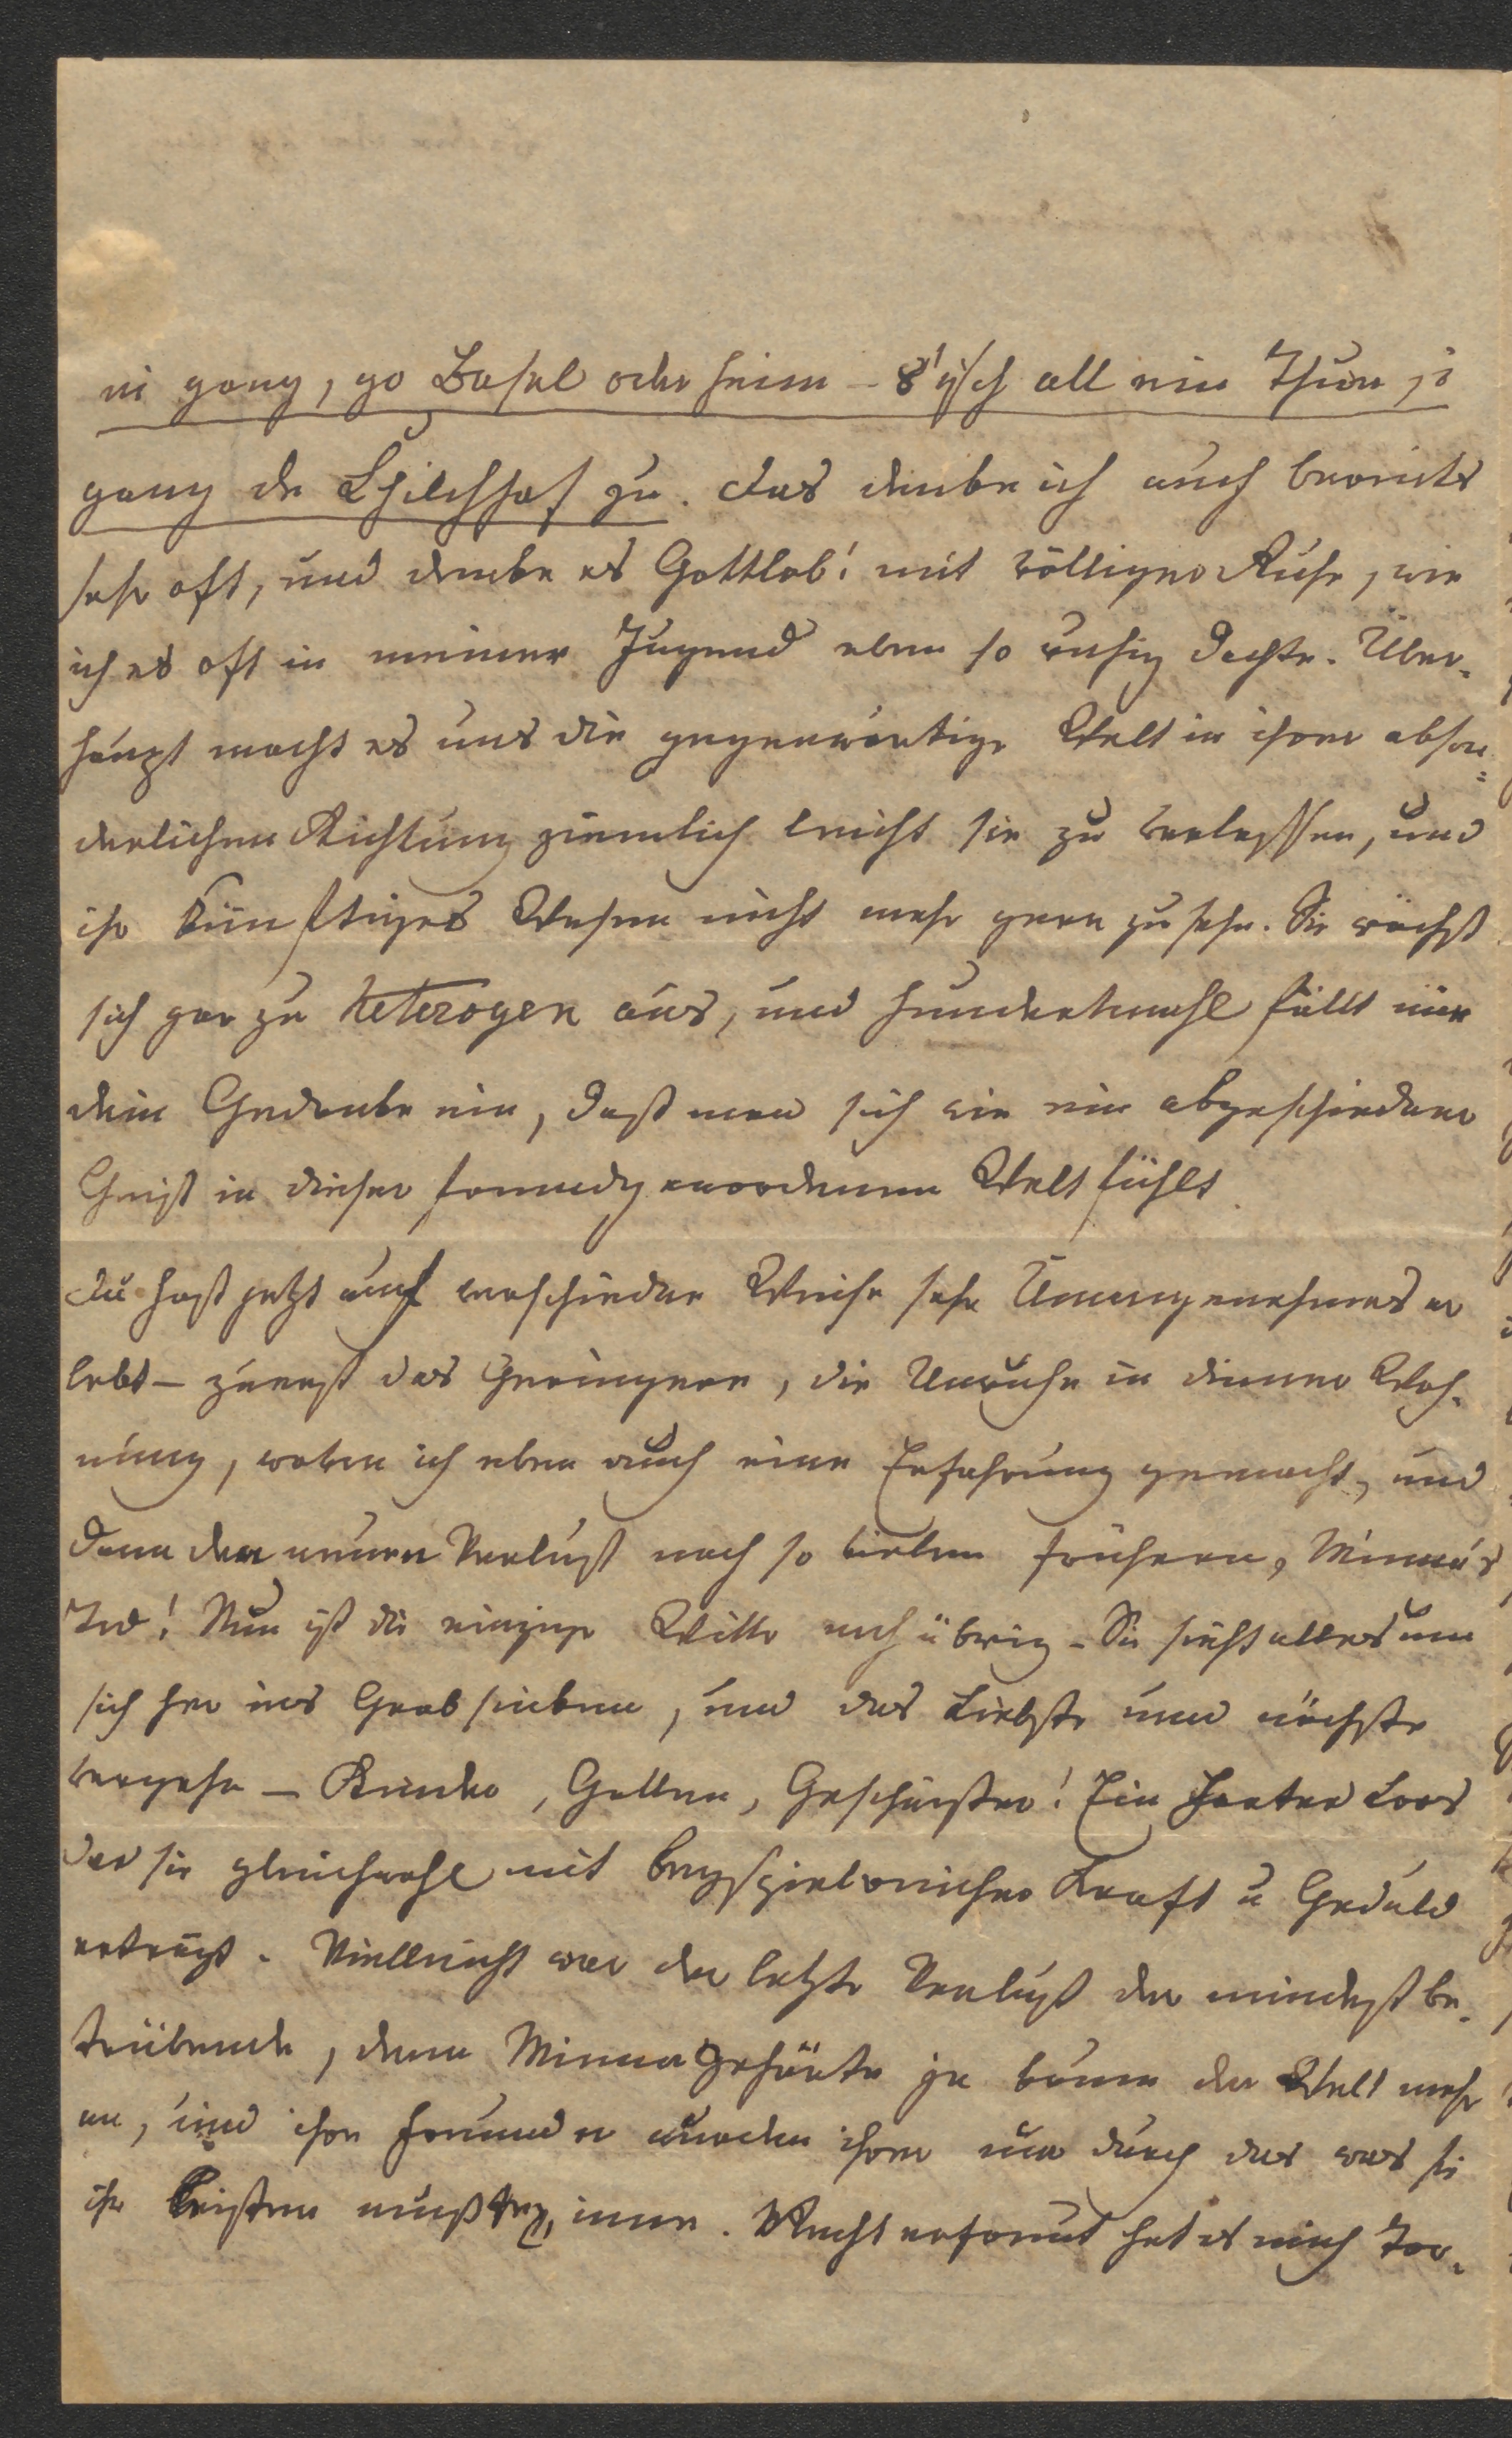 ni gang, go Basel oder heim – 's isch all ein Thun, i
gang de Chilchhof zu. Das denke ich auch bereits
sehr oft, und denke es Gottlob! mit völliger Ruhe, wie
ich es oft in meiner Jugend eben so ruhig dachte. Über-
haupt macht es uns die gegenwärtige Welt in ihrer abson-
derlichen Richtung ziemlich leicht sie zu verlassen, und
ihr künftiges Wesen nicht mehr gern zu sehn. Sie wächst
sich gar zu heterogen aus, und hundertmahl fällt mir
dein Gedanke ein, daß man sich wie ein abgeschiedner
Geist in dieser fremdgewordenen Welt fühlt.
Du hast jetzt auf verschiedne Weise sehr Unangenehmes er
lebt – zuerst das Geringere, die Unruhe in deiner Woh-
nung, wovon ich eben auch eine Erfahrung gemacht, und
dann den neuen Verlust nach so vielen frühern, Minna's
Tod! Nun ist die einzige Witte noch übrig – Sie sieht alles um
sich her ins Grab sinken, und das Liebste und nächste
vergehn – Kinder, Gatten, Geschwister! Ein hartes Loos
das sie gleichwohl mit beyspielreicher Kraft u Geduld
erträgt. Vielleicht war der letzte Verlust der mindest be-
trübende, denn Minna gehörte ja kaum der Welt mehr
an, und ihre Freunde wurden ihrer nur durch das was sie
ihr leisten mußten, inne. Recht erfreut hat es mich Tor-